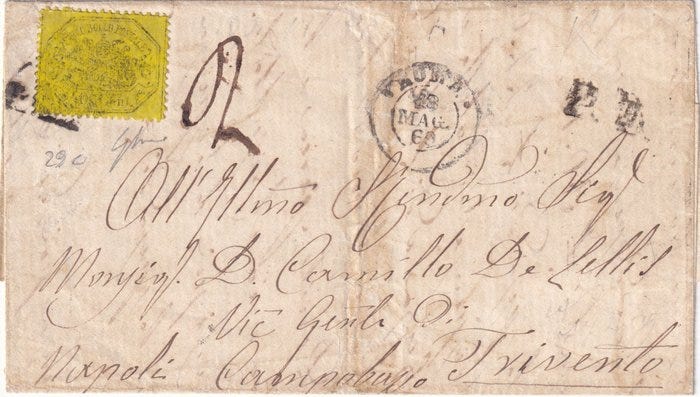 2
ROMA
28
MAG.
6
P. D.
29c
All'Illmo Rendmo Sigr
Monsigr. D. Camillo De Lellis
Vic Genle Di
Napoli Campobasso Trivento